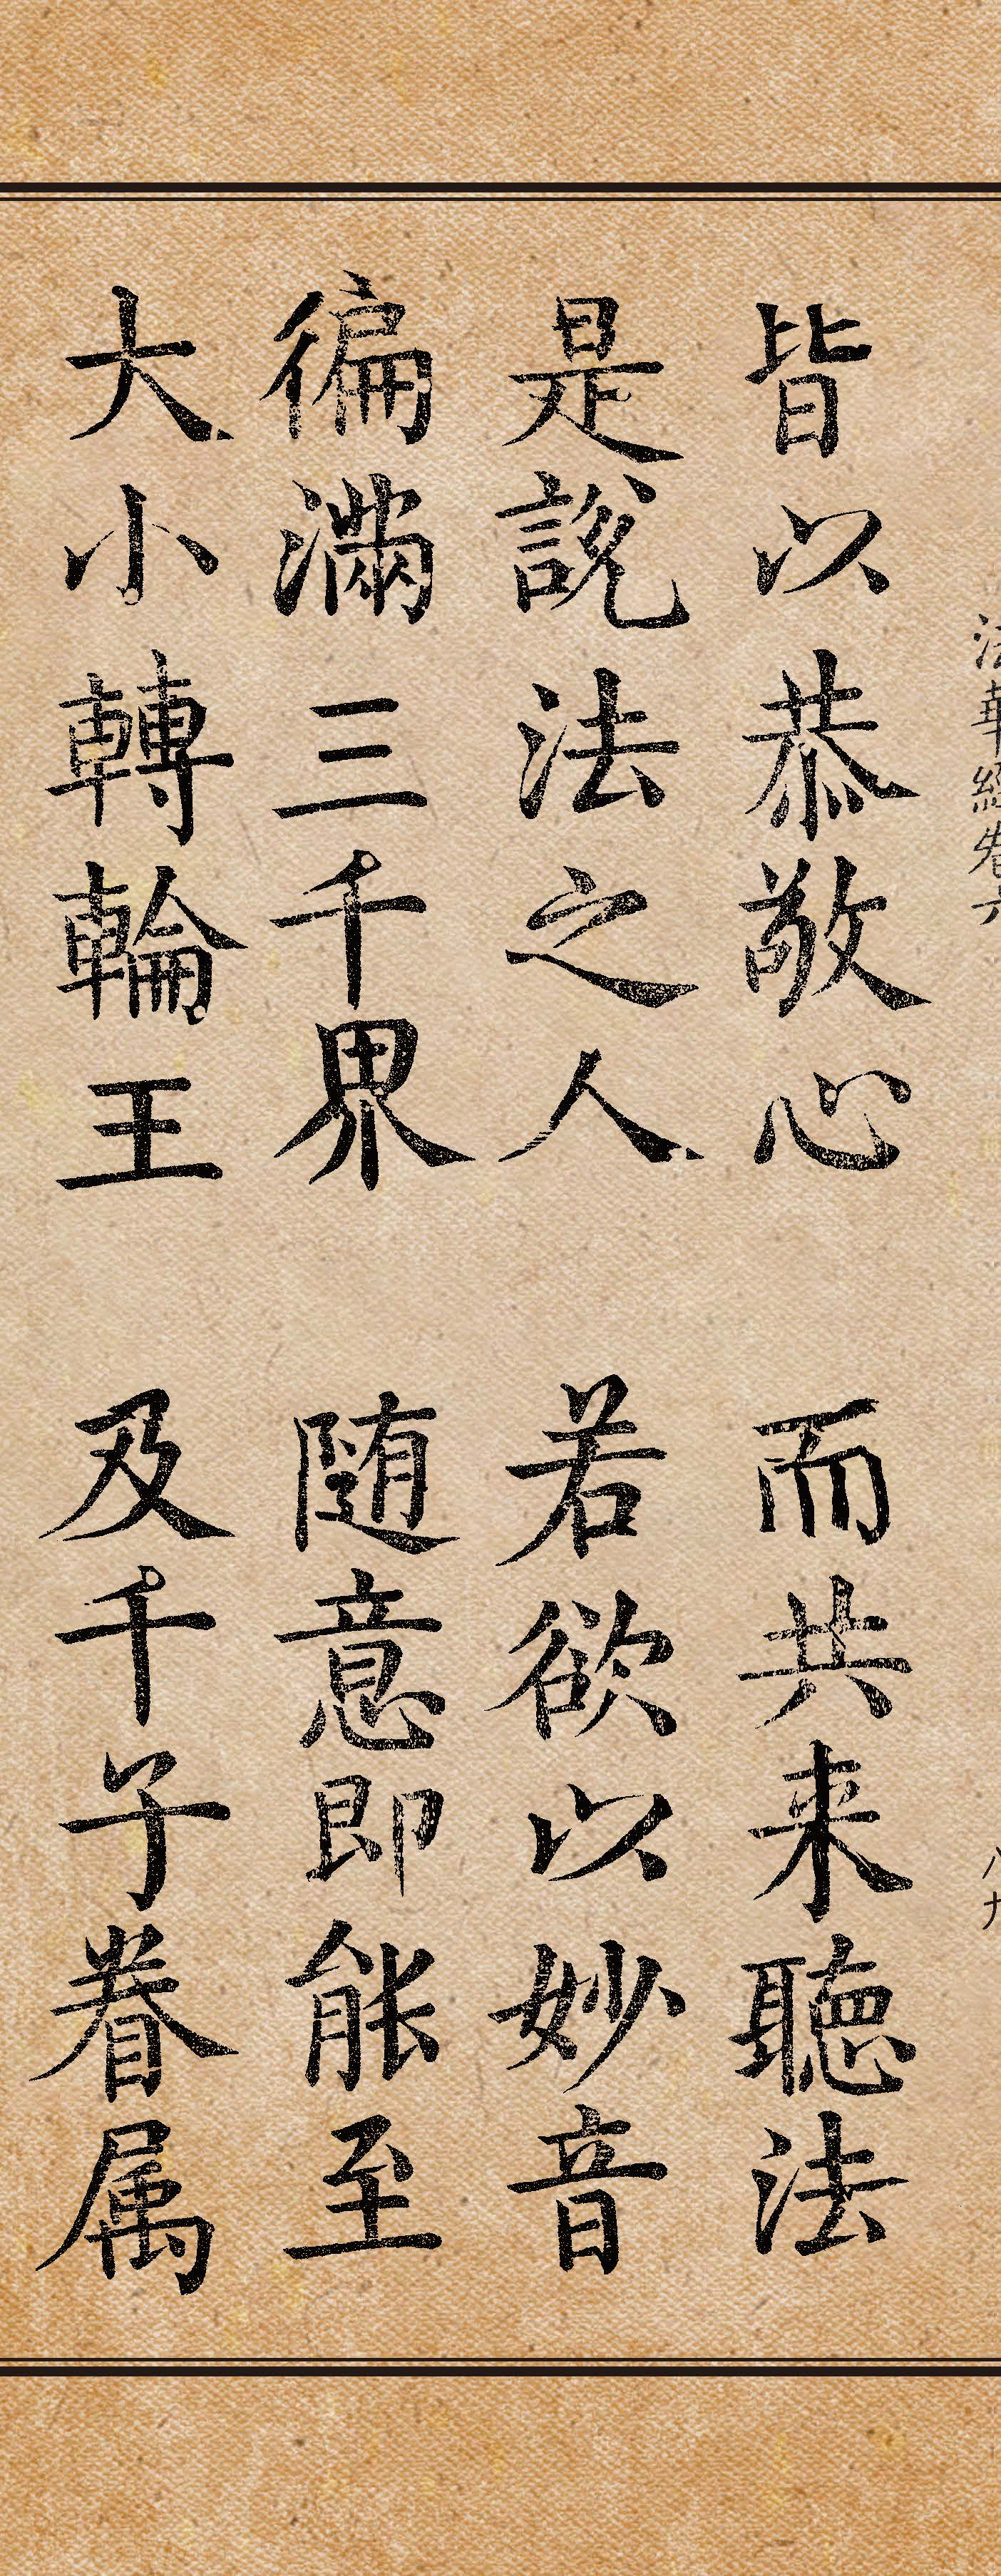 法華經卷六 八九
皆以恭敬心 而共来聽法
是說法之人 若欲以妙音
徧滿三千界 随意即能至
大小轉輪王 及千子眷属